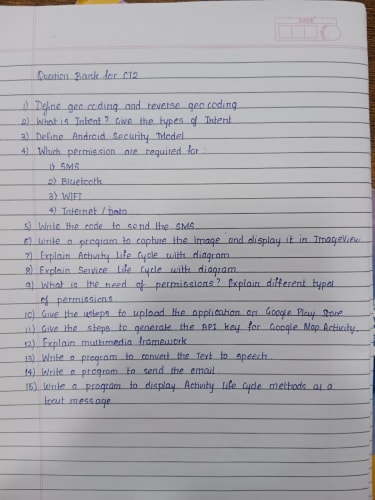 DATE
Question Bank for CT2
1) Define geo coding and reverse geo coding
2) What is Intent? Give the types of Intent
3) Define Android Security Model
4) Which permission are required for :
1) SMS
2) Bluetooth
3) WIFI
4) Internet / Data
5) Write the code to send the SMS
6) Write a program to capture the Image and display it in ImageView
7) Explain Activity Life Cycle with diagram
8) Explain Service Life Cycle with diagram
9) What is the need of permissions? Explain different types
of permissions
10) Give the steps to upload the application on Google Play Store
11) Give the steps to generate the API key for Google Map Activity.
12) Explain multimedia framework
13) Write a program to convert the Text to speech.
14) Write a program to send the email
15) Write a program to display Activity Life Cycle methods as a
toast message